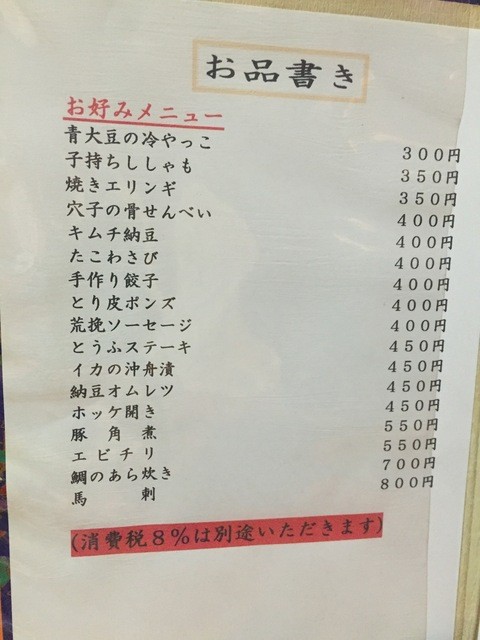 お品書き
お好みメニュー
青大豆の冷やっこ 300円
子持ちししゃも 350円
焼きエリンギ 350円
穴子の骨せんべい 400円
キムチ納豆 400円
たこわさび 400円
手作り餃子 400円
とり皮ポンズ 400円
荒挽ソーセージ 400円
とうふステーキ 450円
イカの沖舟漬 450円
納豆オムレツ 450円
ホッケ開き 450円
豚角煮 550円
エビチリ 550円
鯛のあら炊き 700円
馬刺 800円
(消費税8%は別途いただきます)